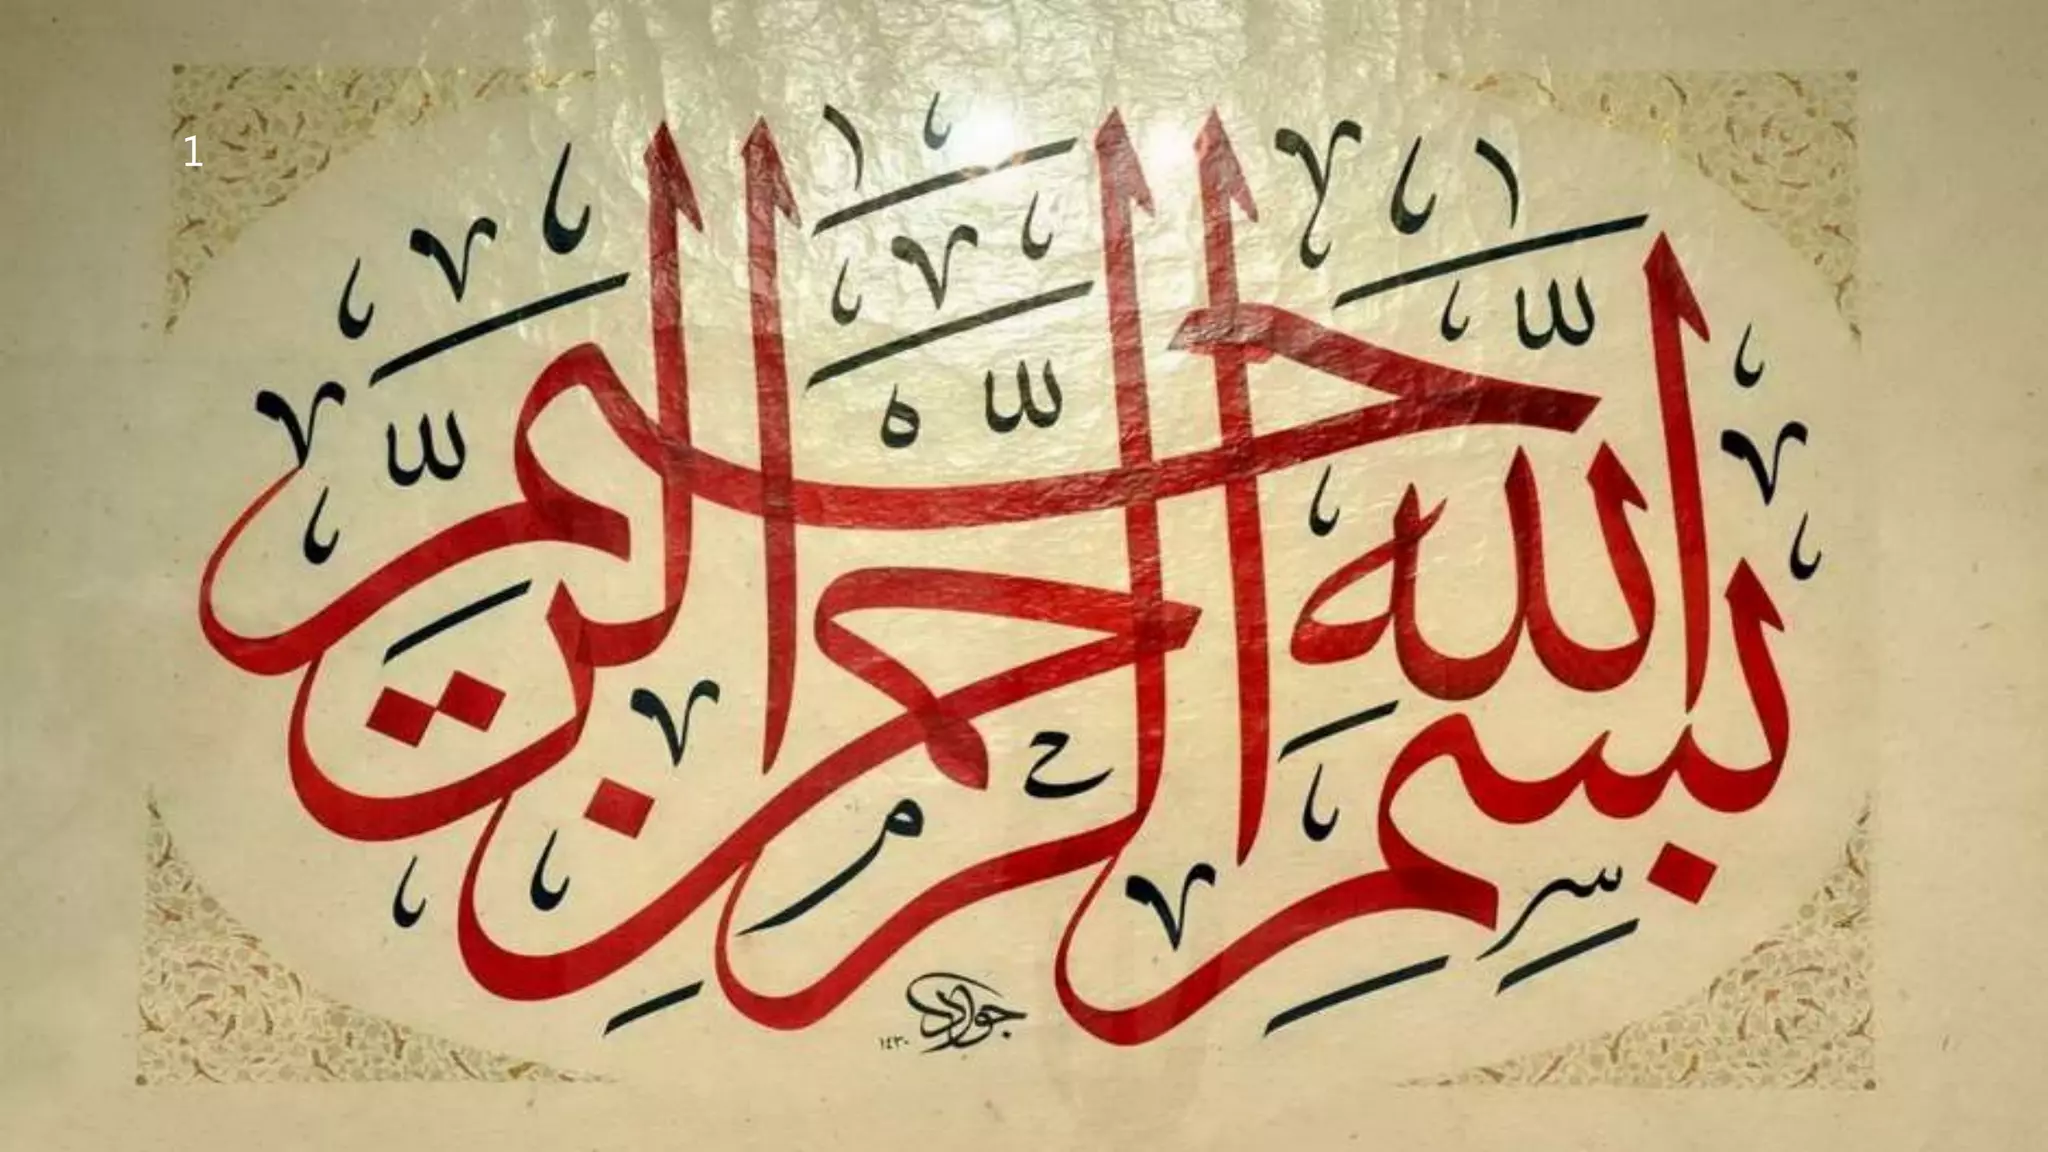 1
بِسْمِ اللَّهِ الرَّحْمَٰنِ الرَّحِيمِ
جواد
١٤٣٠